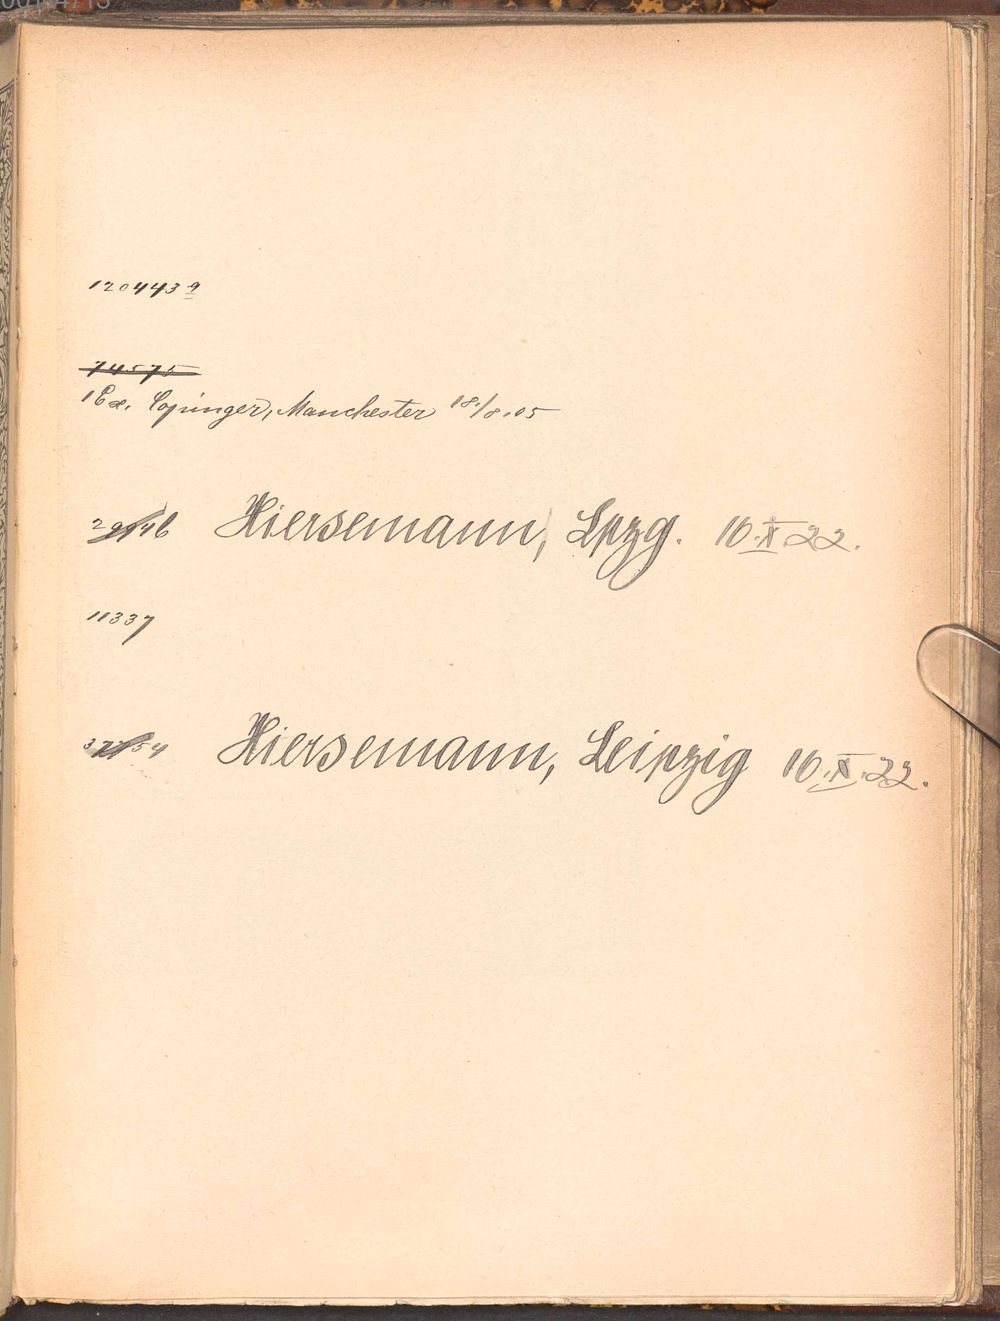 1204439
74575
1 Ex. Copinger, Manchester 18./8.05
Hiersemann, Lpzg. 10.X.22.
11337
Hiersemann, Leipzig 10.X.22.